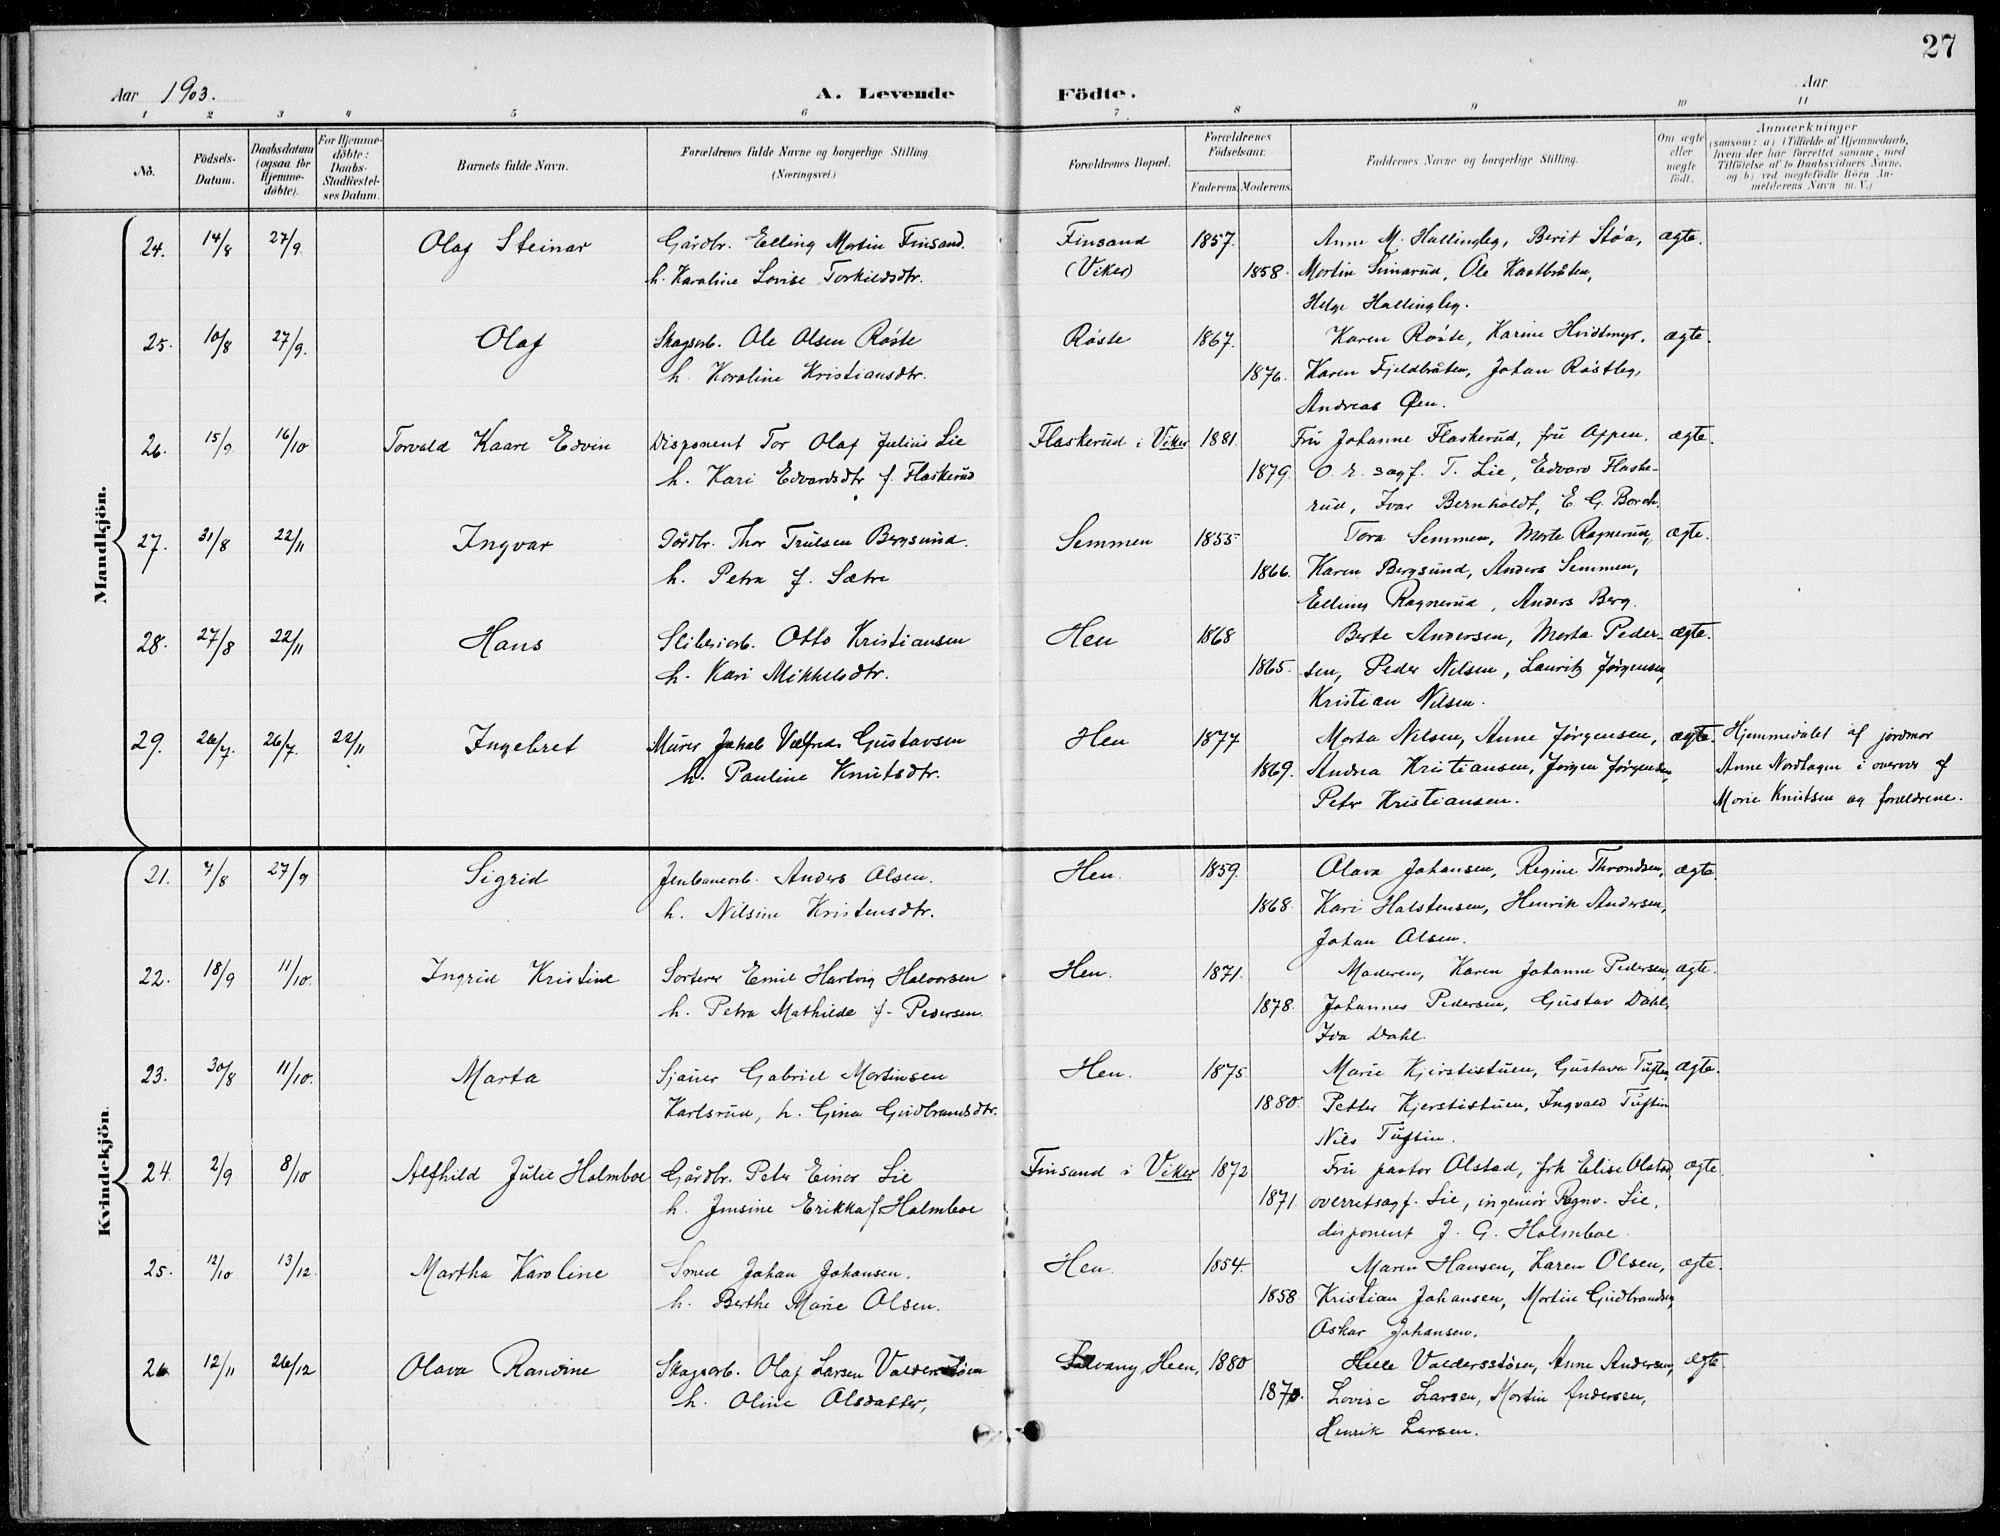 27
Aar 1903. A. Levende Födte. Aar
1 2 3 4 5 6 7 8 9 10 11
No. Födsels-Datum. Daabsdatum (ogsaa for Hjemmedöbte). For Hjemmedöbte: Daabs-Stadfæstelses Datum. Barnets fulde Navn. Forældrenes fulde Navne og borgerlige Stilling. (Næringsvei.) Forældrenes Bopæl. Forældrenes Födselsaar. Faderens. Moderens. Faddernes Navne og borgerlige Stilling. Om ægte eller uægte födt. Anmærkninger (saasom: a) i Tilfælde af Hjemmedaab, hvem der har forrettet samme, med Tilföielse af to Daabsvidners Navne, og b) ved uægtefödte Börn Anmelderens Navn m. V.)
Mandkjön.
24. 14/8 27/9. Olaf Steinar Gårdbr. Elling Martin Finsand. Finsand 1857. Anne M. Hallingby, Berit Støa, ægte.
h. Karoline Lovise Torkildsdtr. (Viker) 1858. Martin Finsarud, Ole Kastbråten,
Helge Hallingby.
25. 10/8 27/9. Olaf Skogsarb. Ole Olsen Røste Røste 1867. Karen Røste, Karine Hvidtmyr, ægte.
h. Karoline Kristiansdtr. 1876. Karen Fjeldbråten, Johan Røstby,
Andreas Øen.
26. 15/9. 16/10 Torvald Kaare Edvin Disponent Tor Olaf Julius Lie Flaskerud i Viker 1881. Fru Johanne Flaskerud, fru Appen. ægte.
h. Kari Edvardsdtr f. Flaskerud 1879. O. r. sagf. T. Lie, Edvard Flaske-
rud, Ivar Bernholdt, E G. Borch.
27. 31/8 22/11 Ingvar Gårdbr. Thor Trulsen Bergsund. Semmen 1855 Tora Semmen, Marte Ragnerud, ægte.
h. Petra f. Sætre 1866. Karen Bergsund, Anders Semmen,
Elling Ragnerud, Anders Berg.
28. 27/8 22/11 Hans Sliberiarb. Otto Kristiansen Hen 1868 Berte Andersen, Marta Peder- ægte.
h. Kari Mikkelsdtr. 1865. sen, Peder Nilsen, Lauritz Jørgensen,
Kristian Nilsen.
29. 26/7. 26/7 22/11 Ingebret Murer Jakob Valfrid Gustavsen Hen 1877 Marta Nilsen, Anne Jørgensen, ægte. Hjemmedøbt af jordmor
h. Pauline Knutsdtr. 1869. Andrea Kristiansen, Jørgen Jørgensen, Anne Nordhagen i overvær af
Peter Kristiansen. Marie Knutsen og forældrene.
Kvindekjön.
21. 7/8 27/9 Sigrid Jernbanearb. Anders Olsen. Hen. 1859. Olava Johansen, Regine Throndsen, ægte.
h. Nilsine Kristensdtr. 1868. Kari Halstensen, Henrik Andersen,
Johan Olsen.
22. 18/9 11/10. Ingrid Kristine Sorterer Emil Hartvig Halvorsen Hen. 1871. Moderen, Karen Johanne Pedersen, ægte.
h. Petra Mathilde f. Pedersen. 1878. Johannes Pedersen, Gustav Dahl,
Ida Dahl.
23. 30/8 11/10. Marta Sjauer Gabriel Martinsen Hen. 1875. Marie Kjerstistuen, Gustava Tuftin, ægte.
Karlsrud, h. Gina Gudbrandsdtr. 1880. Petter Kjerstistuen, Ingvald Tuftin
Nils Tuftin.
24. 2/9 8/10 Alfhild Julie Holmboe Gårdbr. Peter Einar Lie Finsand i Viker 1872 Fru pastor Alstad, frk Elise Alstad, ægte.
h. Jensine Erikka f Holmboe 1871. overretsagf. Lie, ingeniør Ragnv. Lie,
disponent J. G. Holmboe.
25. 12/10 13/12. Martha Karoline Smed Johan Johansen. Hen. 1854. Maren Hansen, Karen Olsen, ægte.
h. Berthe Marie Olsen. 1858 Kristian Johansen, Martin Gudbrandsen,
Oskar Johansen.
26 12/11 26/12 Olava Randine Skogsarb. Olaf Larsen Valdersstøen Hen, 1880 Helle Valdersstøen, Anne Andersen, ægte
h. Oline Olsdatter, Lovise Larsen, Martin Andersen,
Henrik Larsen.